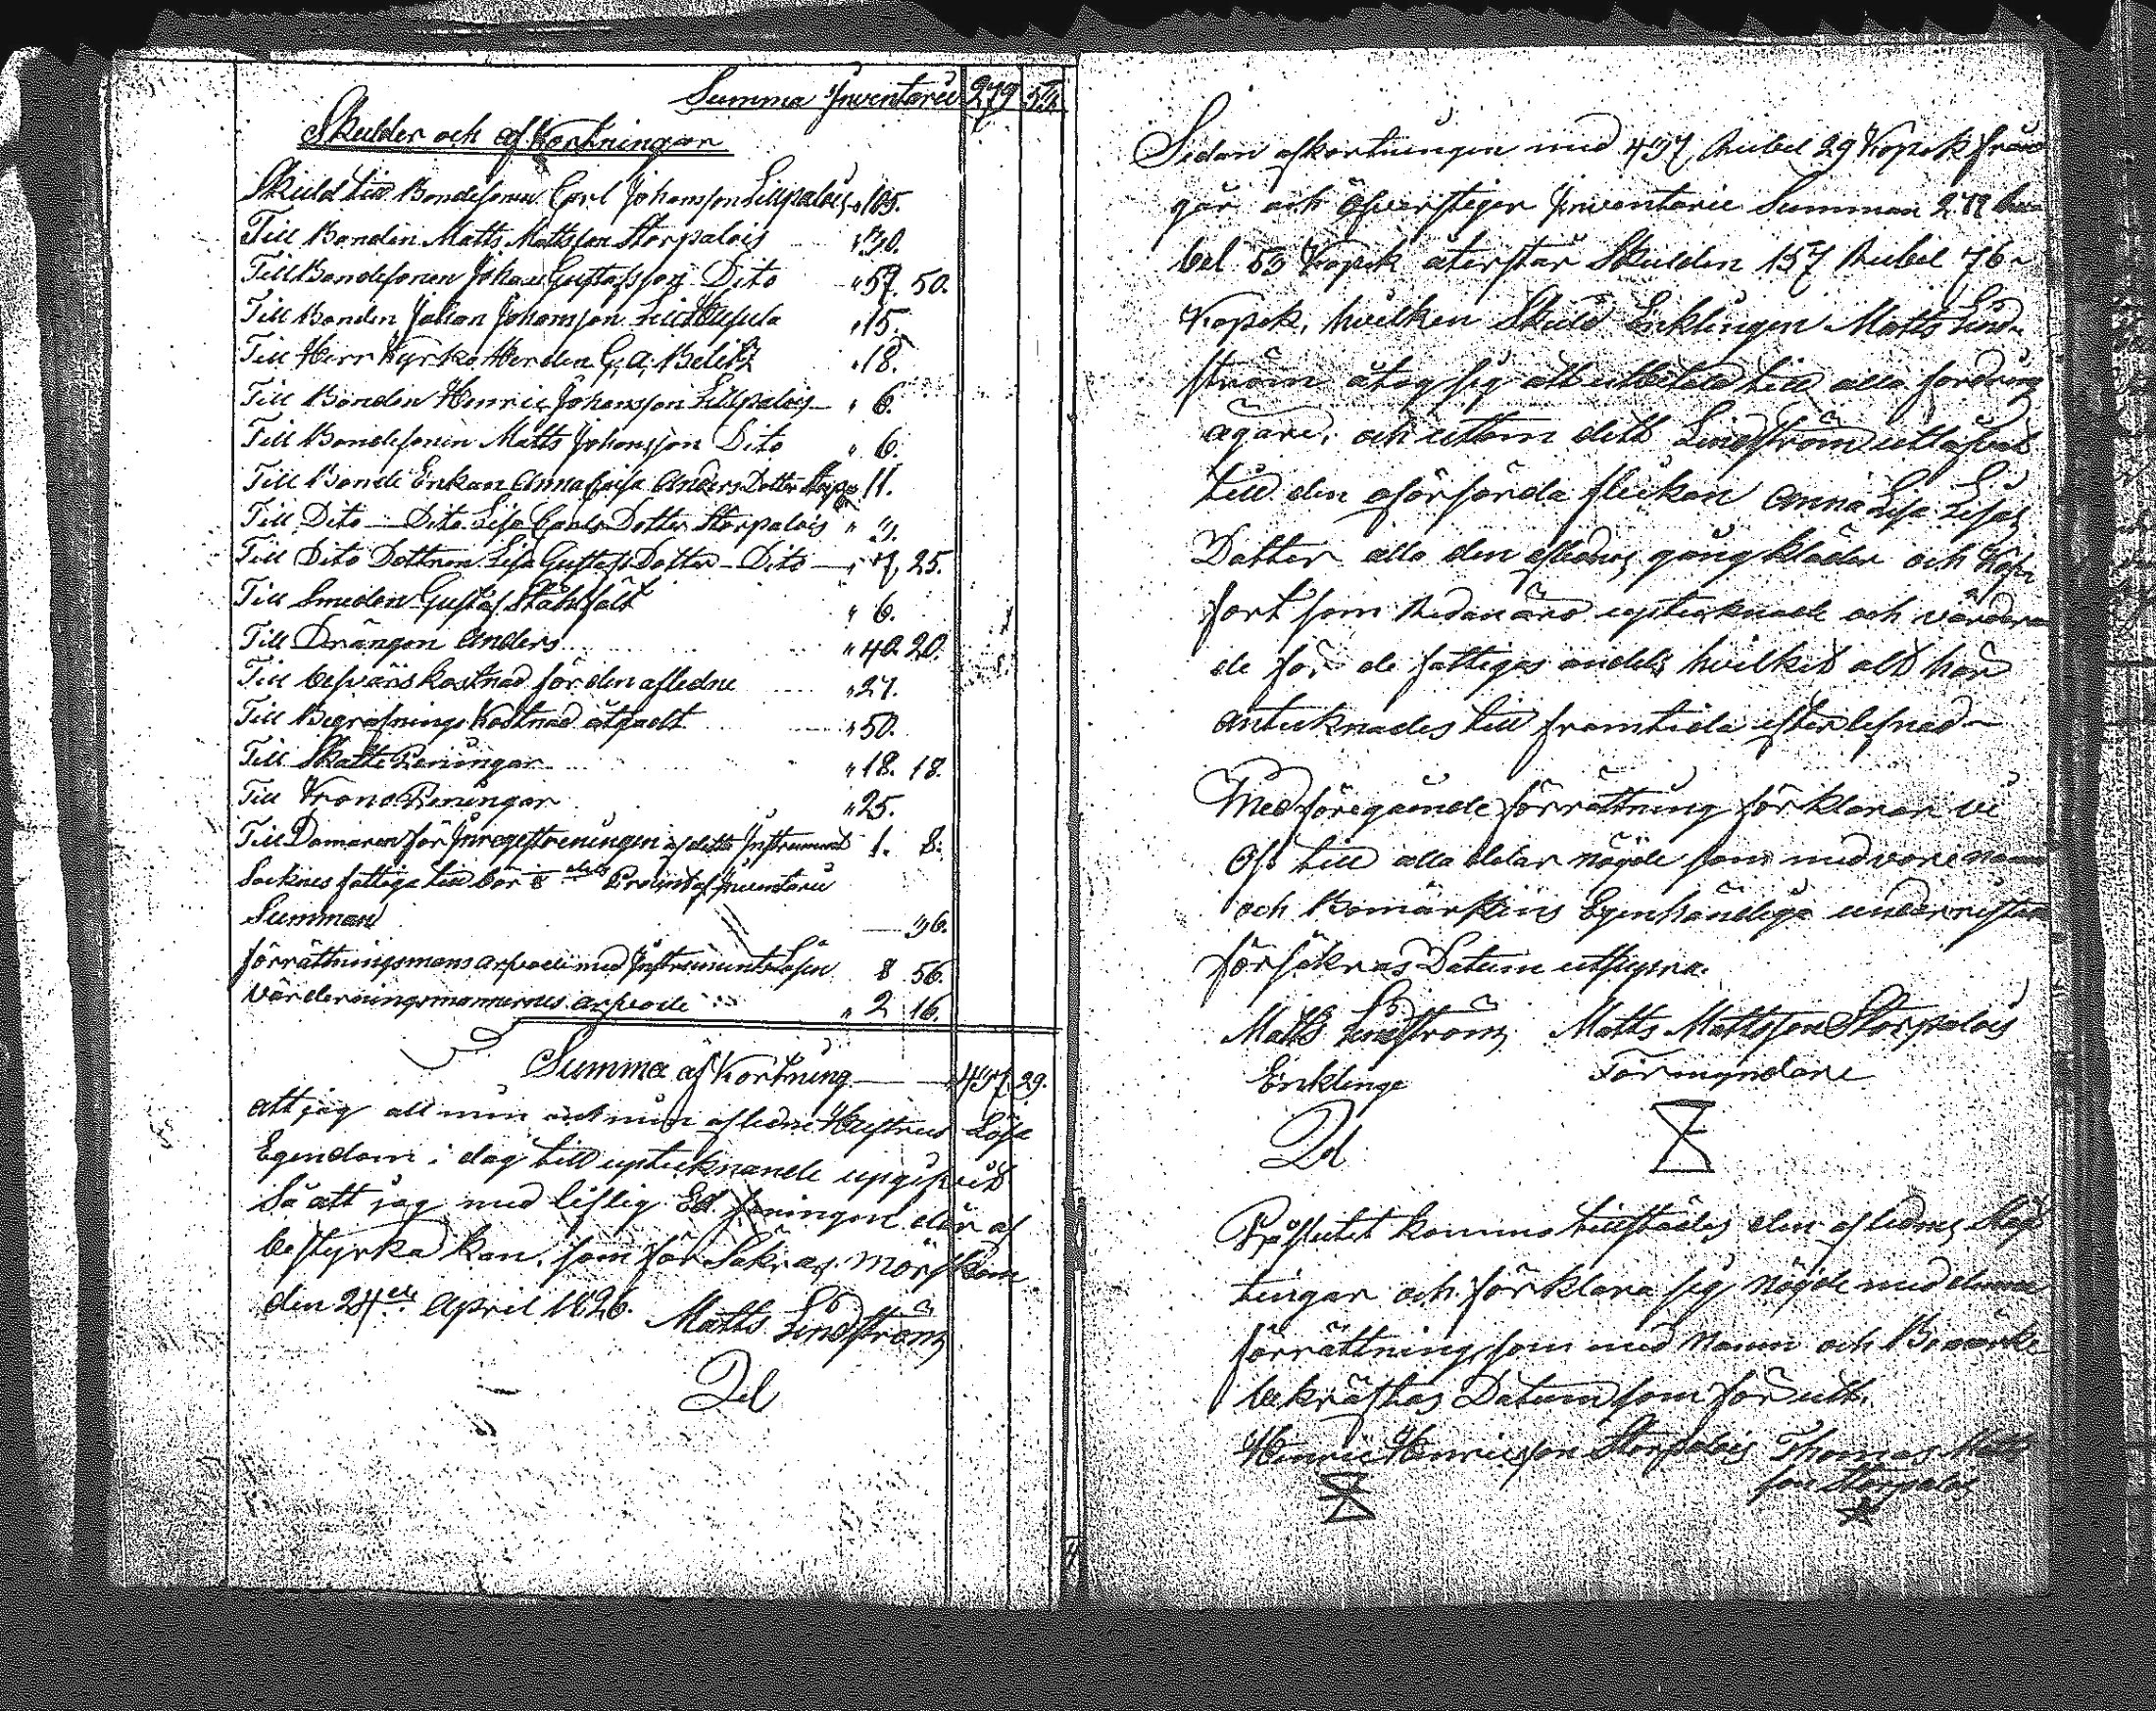 Summa Inventarii 279 53
Skulder och afkortningar
Skuld till Bondesonen Carl Johansson Lillpalois " 105.
Till Bonden Matts Mattsson Storpalois " 30.
Till Bondesonen Johan Gustafsson Dito " 57. 50.
Till Bonden Johan Johansson " 15.
Till Herr Kyrko Herden G. A. Belitz " 18.
Till Bonden Henric Johansson Lillpalois " 6.
Till Bondesonen Matts Johansson Dito " 6.
Till Bonde Enkan Anna Caisa Anders Dotter " 11.
Till Dito Dito Lisa Carls Dotter Storpalois " 3.
Till Dito Dottren Lisa Gustafs Dotter Dito " 7, 25.
Till Smeden Gustaf Stahlfält " 6.
Till Drängen Anders " 40. 20.
Till besvärskostnad för den aflidne " 27.
Till Begrafnings Kostnad åtgadt " 50.
Till Skatte Peningar " 18. 18.
Till Krono Peningar " 25.
Till Domaren för Inregistreringen af detta Instrument 1. 8.
Socknes fattiga tillbör Procent af Inventarii
Summan 36.
förrättningsmans arfvode med Instruments Lösen 8 56.
Värderingsmännernes arfvode " 2 16.
Summa afkortning 437 29.
att jag all min och min aflidne Hustrus Lösa
Egendom i dag till uptecknande upgifvit
så att jag med liflig Ed föreningen der af
bestyrka kan, som försäkras. Mörskom
den 24de April 1826. Matts Lindström
Sedan afkortningen med 437 Rubel 29 Kopek från
går och öfverstiger Inventarii Summan 279 Ru
bel 53 Kopek återstår Skulden 157 Rubel 76
Kopek, hvilken Skuld Enklingen Matts Lind
ström åtog sig att utbetala till alla fordrings
ägare, och utom dett Lindström utlåfvat
till den oförsörda flickan Anna Lisa Lisas
Dotter alla den aflidnes gångkläder och
som redan äro uptecknade och värdera
de för de fattigas andel, hvilket alt här
antecknades till framtida efterlefnad
Med föregående förrättning förklarar vi
Oss till alla delar nögde som med våre namn
och Bomärken Egenhändiga underskrifter
försäkras Datum utsupra.
Matts Lindström Matts Mattsson Storpalois
Enklinge Förmyndare
På slutet kommo tillstädes den aflidnes Släg
tingar och förklara sig nögde med denna
förrättning, som med Namn och Bomärke
bekräftas Datum som förutt.
Henric Henricsson Storpalois Thomas Matts
son Storpalois